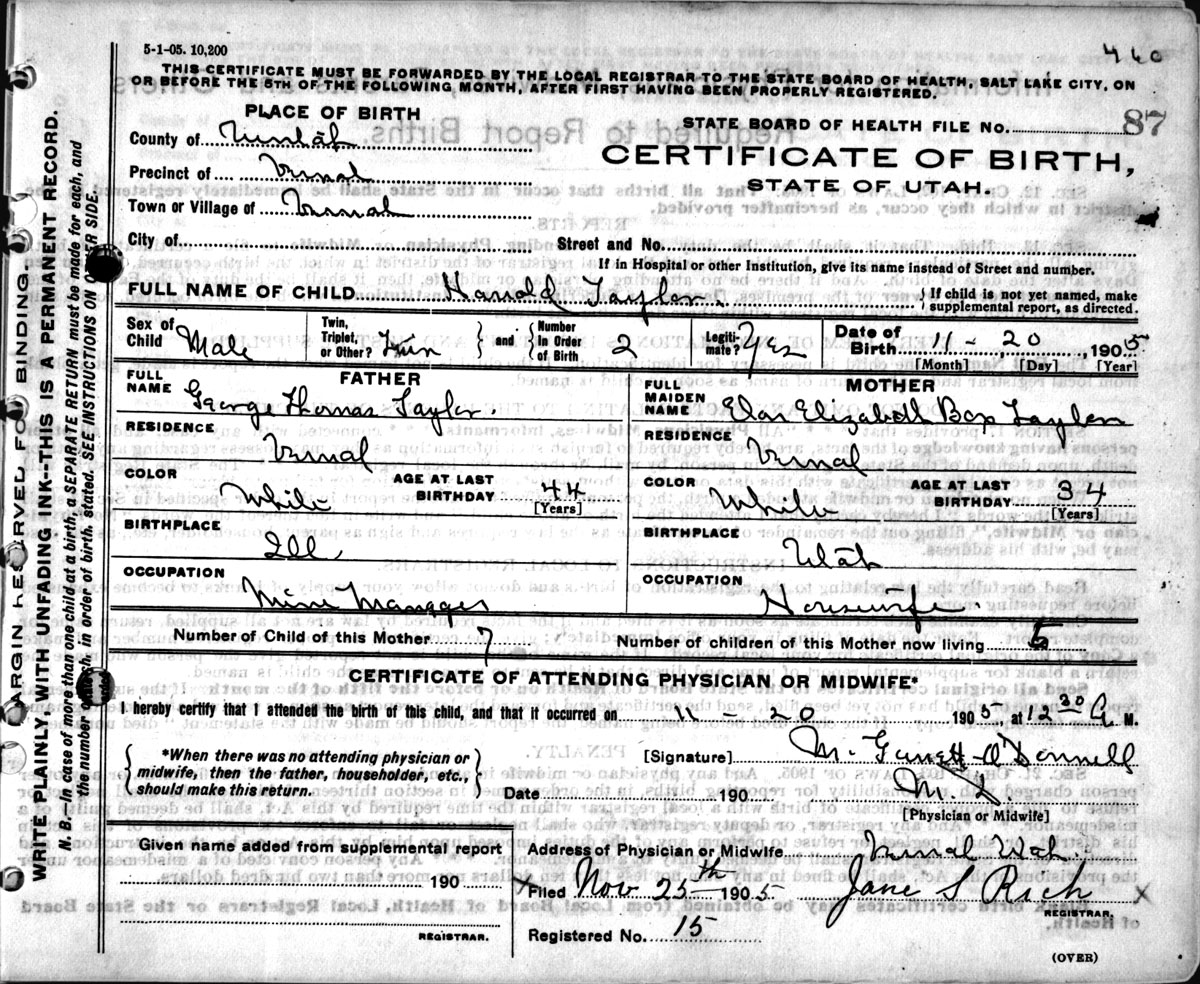 5-1-05. 10,200
460
THIS CERTIFICATE MUST BE FORWARDED BY THE LOCAL REGISTRAR TO THE STATE BOARD OF HEALTH, SALT LAKE CITY, ON
OR BEFORE THE 5TH OF THE FOLLOWING MONTH, AFTER FIRST HAVING BEEN PROPERLY REGISTERED.
PLACE OF BIRTH
STATE BOARD OF HEALTH FILE NO. 87
County of
CERTIFICATE OF BIRTH,
STATE OF UTAH.
Precinct of Vernal
Town or Village of Vernal
City of Street and No.
If in Hospital or other Institution, give its name instead of Street and number.
FULL NAME OF CHILD Harold Taylor. } If child is not yet named, make
supplemental report, as directed.
Sex of Child Male
Twin, Triplet, or Other? Twin } and { Number In Order of Birth 2
Legiti- mate? Yes
Date of Birth 11 - 20 1905
[Month] [Day] [Year]
FATHER
FULL NAME George Thomas Taylor
RESIDENCE
Vernal
COLOR White AGE AT LAST BIRTHDAY 44
[Years]
BIRTHPLACE
Ill
OCCUPATION
Mine Manager
MOTHER
FULL MAIDEN NAME Elizabeth Taylor
RESIDENCE
Vernal
COLOR White AGE AT LAST BIRTHDAY 34
[Years]
BIRTHPLACE
Utah
OCCUPATION
Housewife
Number of Child of this Mother 7 Number of children of this Mother now living 5
CERTIFICATE OF ATTENDING PHYSICIAN OR MIDWIFE*
I hereby certify that I attended the birth of this child, and that it occurred on 11 - 20 1905 at 12 30 A M.
{ *When there was no attending physician or
midwife, then the father, householder, etc.,
should make this return. }
[Signature] M. O'Donnell
Date 190
[Physician or Midwife]
Given name added from supplemental report
190
REGISTRAR.
Address of Physician or Midwife Vernal Utah
Filed Nov 25th 1905 Jane S Rich x
REGISTRAR.
Registered No. 15
(OVER)
MARGIN RESERVED FOR BINDING.
WRITE PLAINLY WITH UNFADING INK--THIS IS A PERMANENT RECORD.
N. B.--In case of more than one child at a birth, a SEPARATE RETURN must be made for each, and
the number of each, in order of birth, stated. SEE INSTRUCTIONS ON OTHER SIDE.